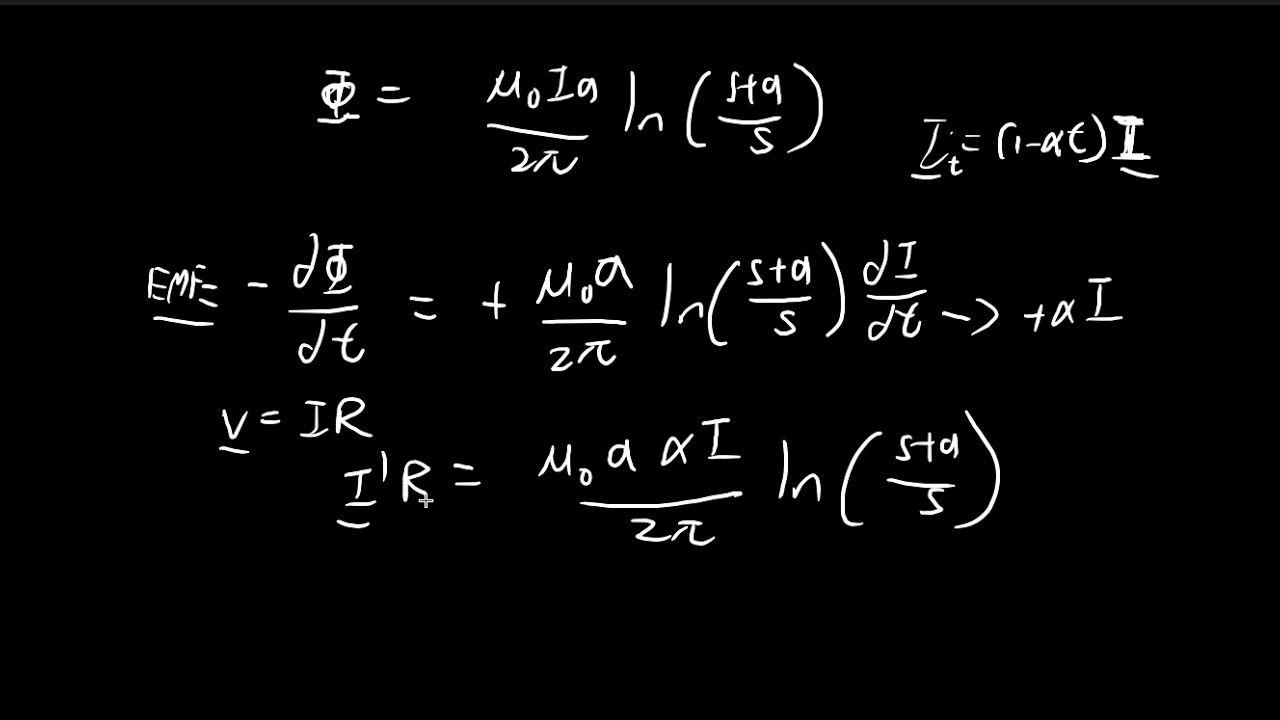 Φ = μ₀Ia/2π ln(s+a/s)
I_t = (1-αt)I
EMF = - dΦ/dt = + μ₀a/2π ln(s+a/s) dI/dt -> +αI
V = IR
I'R = μ₀ a α I/2π ln(s+a/s)